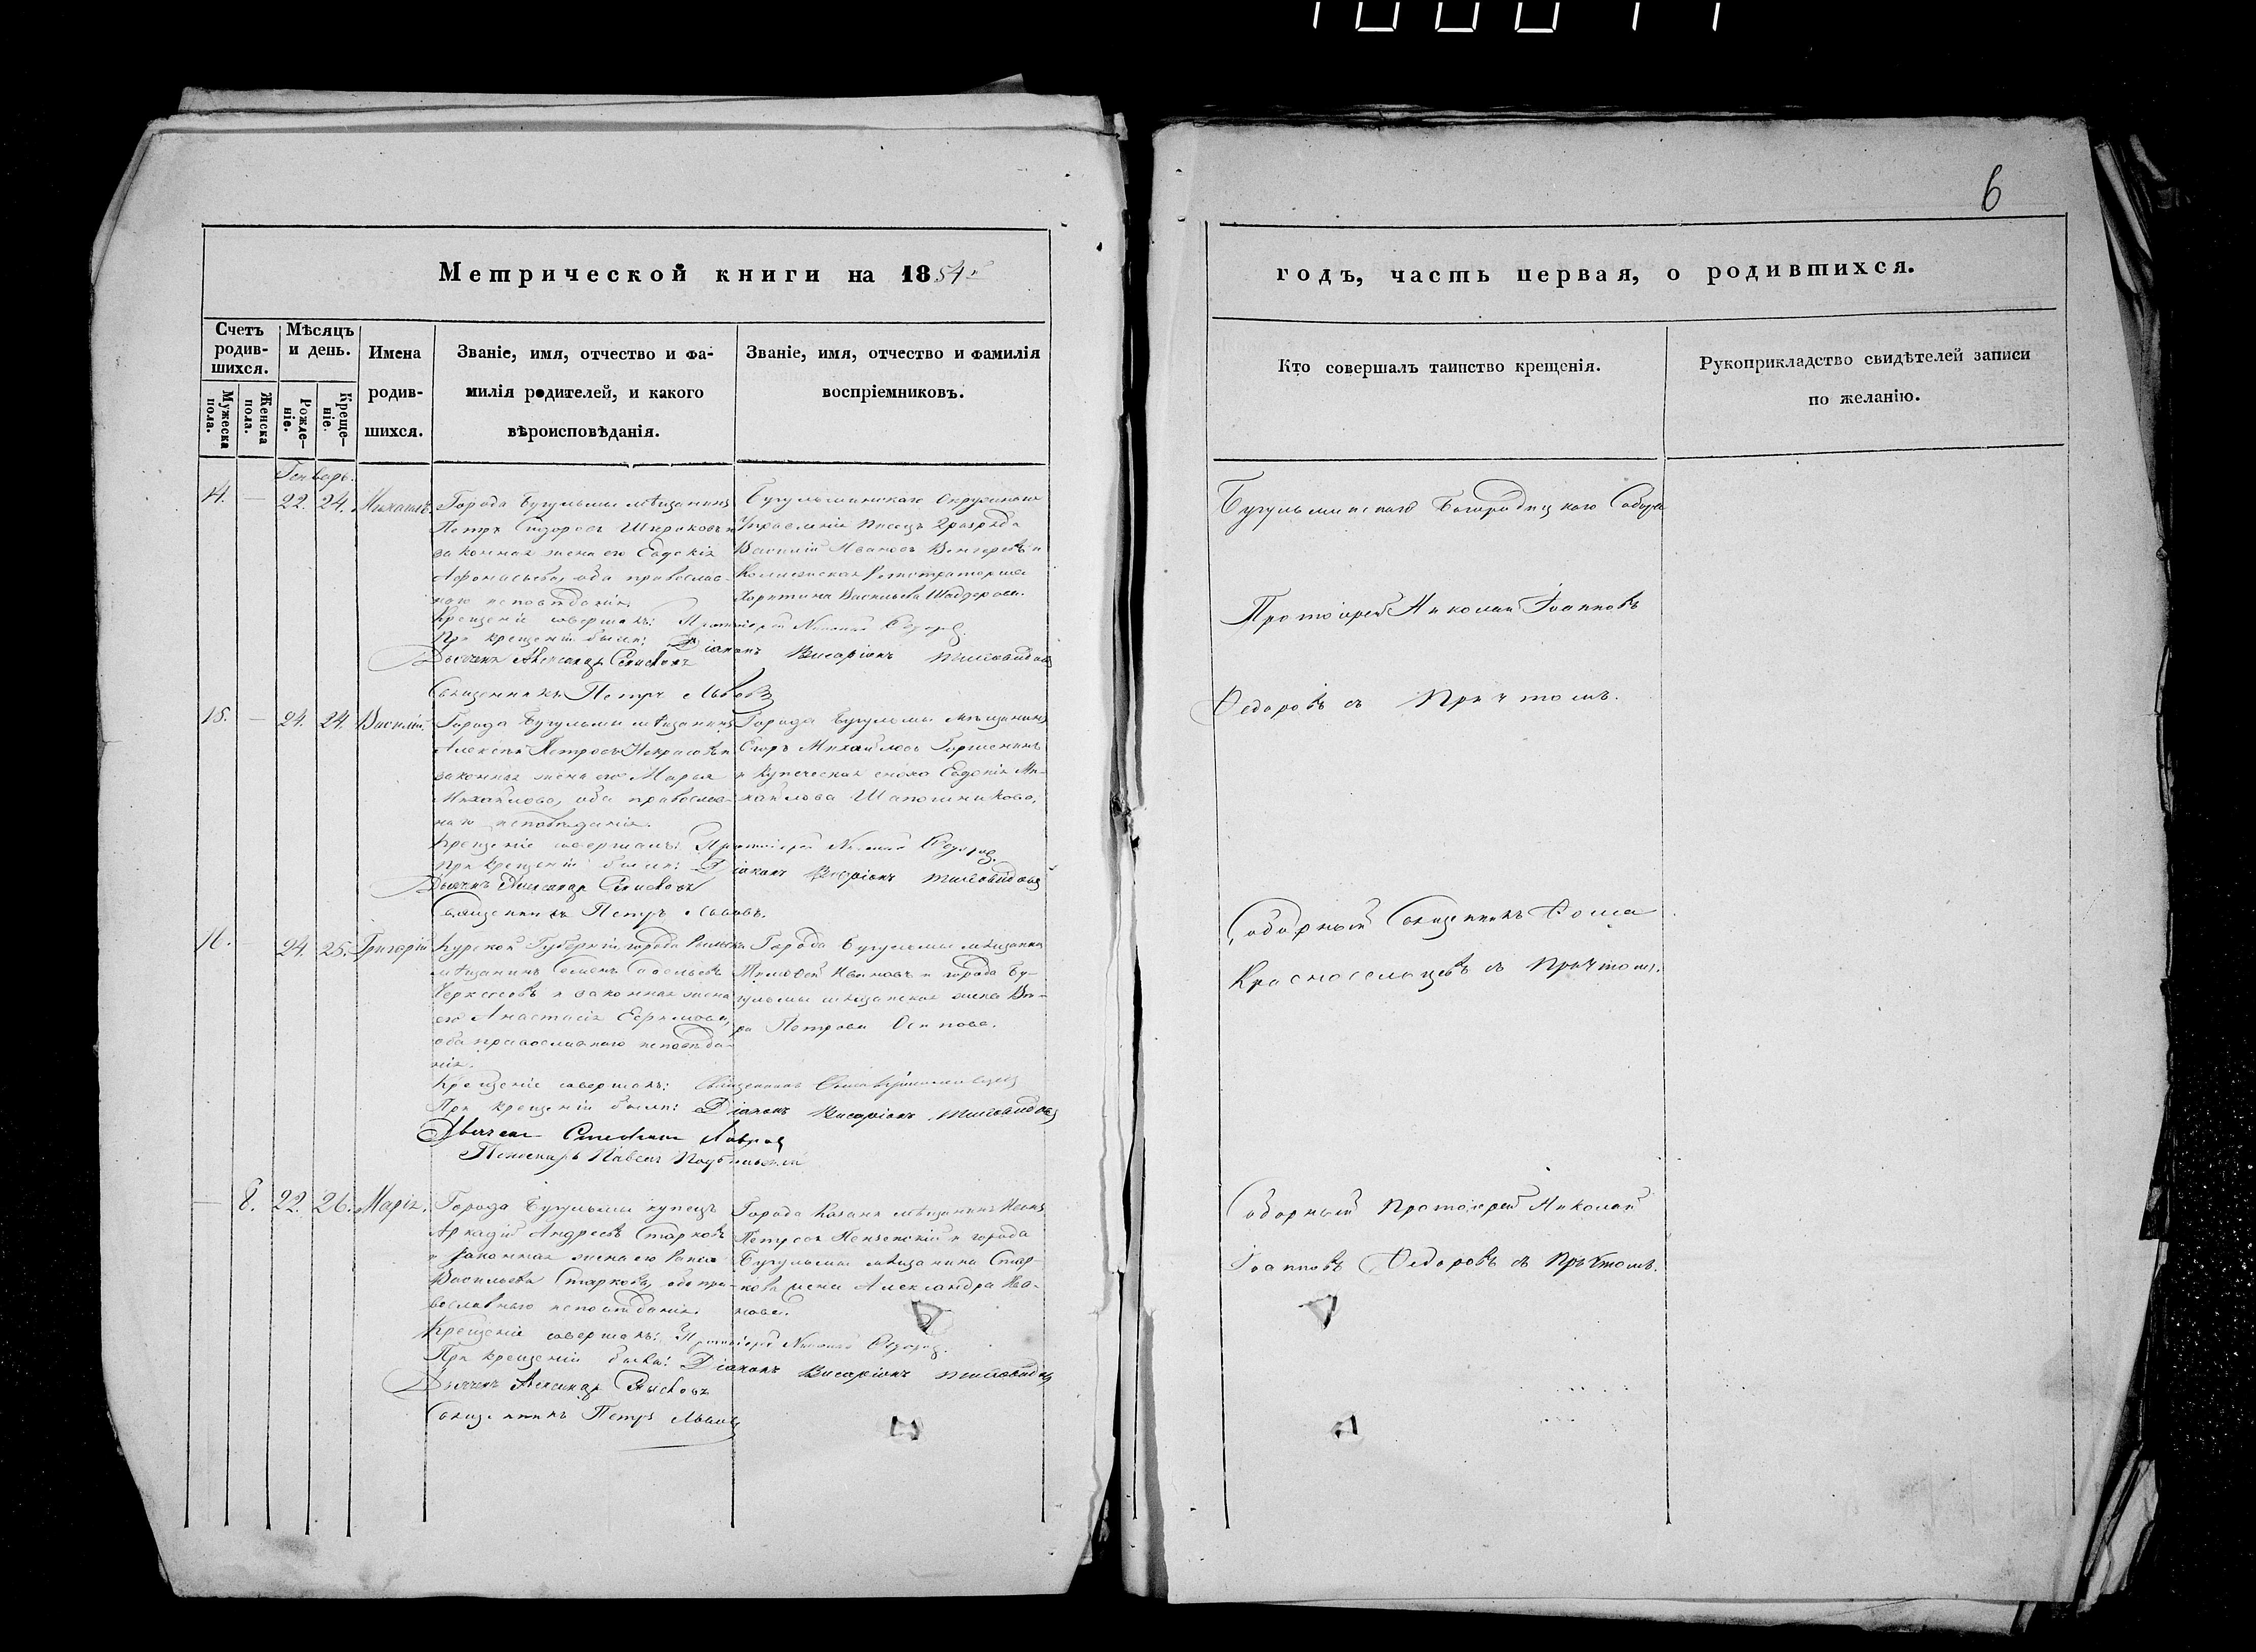 6
Метрической книги на 1854
годъ, часть первая, о родившихся.
Счетъ родив-шихся.
Мужеска пола.
Женска пола.
Мѣсяцъ и день.
Рожде-ніе.
Креще-ніе.
Имена родив-шихся.
Званіе, имя, отчество и фа-
милія родителей, и какого
вѣроисповѣданія.
Званіе, имя, отчество и фамилія
воспріемниковъ.
Кто совершалъ таинство крещенія.
Рукоприкладство свидѣтелей записи
по желанію.
Генварь.
14. — 22. 24. Михаилъ.
Города Бугульмы мѣщанинъ
Петръ Сидоровъ Широковъ и
законная жена его Евдокія
Афонасьева, оба православ-
наго исповѣданія.
Бугульминскаго Окружнаго
Управленія Писецъ 2 разряда
Василій Ивановъ Венгеровъ и
Колежская Регистраторша
Харитина Васильева
Крещеніе совершалъ: Протоіерей Николай Федоровъ.
При крещеніи были: Діаконъ Висаріонъ
Дьячекъ Александр
Священникъ Петръ Львовъ
Бугульминскаго Богородицкаго Собора
Протоіерей Николай Іоанновъ
Федоровъ съ Причтомъ.
15. — 24. 24. Василій.
Города Бугульмы мѣщанинъ
Алексѣй Петровъ Некрасовъ и
законная жена его Марья
Михайлова, оба православ-
наго исповѣданія.
Города Бугульмы мѣщанинъ
Егоръ Михайловъ Горшенинъ
и купеческая сноха Евдокія Ми-
хайлова Шапошникова.
Крещеніе совершалъ: Протоіерей Николай Федоровъ.
При крещеніи были: Діаконъ Висаріонъ
Дьячекъ Александр
Священникъ Петръ Львовъ.
16. — 24. 25. Григорій.
Курской Губерніи города Рыльска
мѣщанинъ Семенъ Савельевъ
Черкесовъ и законная жена
его Анастасія Ефимова,
оба православнаго исповѣда-
нія.
Города Бугульмы мѣщанинъ
Тимофей Ивановъ и города Бу-
гульмы мѣщанская жена Вѣ-
ра Петрова Осипова.
Крещеніе совершалъ: Священникъ
При крещеніи были: Діаконъ Висаріонъ
Дьячекъ Стефанъ Лавровъ
Пономарь Павелъ
Соборный Священникъ Фома
Красносельцевъ съ Причтомъ.
— 8. 22. 26. Марія.
Города Бугульмы купецъ
Аркадій Андреевъ Старковъ
и законная жена его Раиса
Васильева Старкова, оба пра-
вославнаго исповѣданія.
Города Казани мѣщанинъ
Петровъ Пензенскій и города
Бугульмы мѣщанина Стар-
кова жена Александра Ива-
нова.
Крещеніе совершалъ: Протоіерей Николай Федоровъ.
При крещеніи были: Діаконъ Висаріонъ
Дьячекъ Александр
Священникъ Петръ Львовъ
Соборный Протоіерей Николай
Іоанновъ Федоровъ съ Причтомъ.